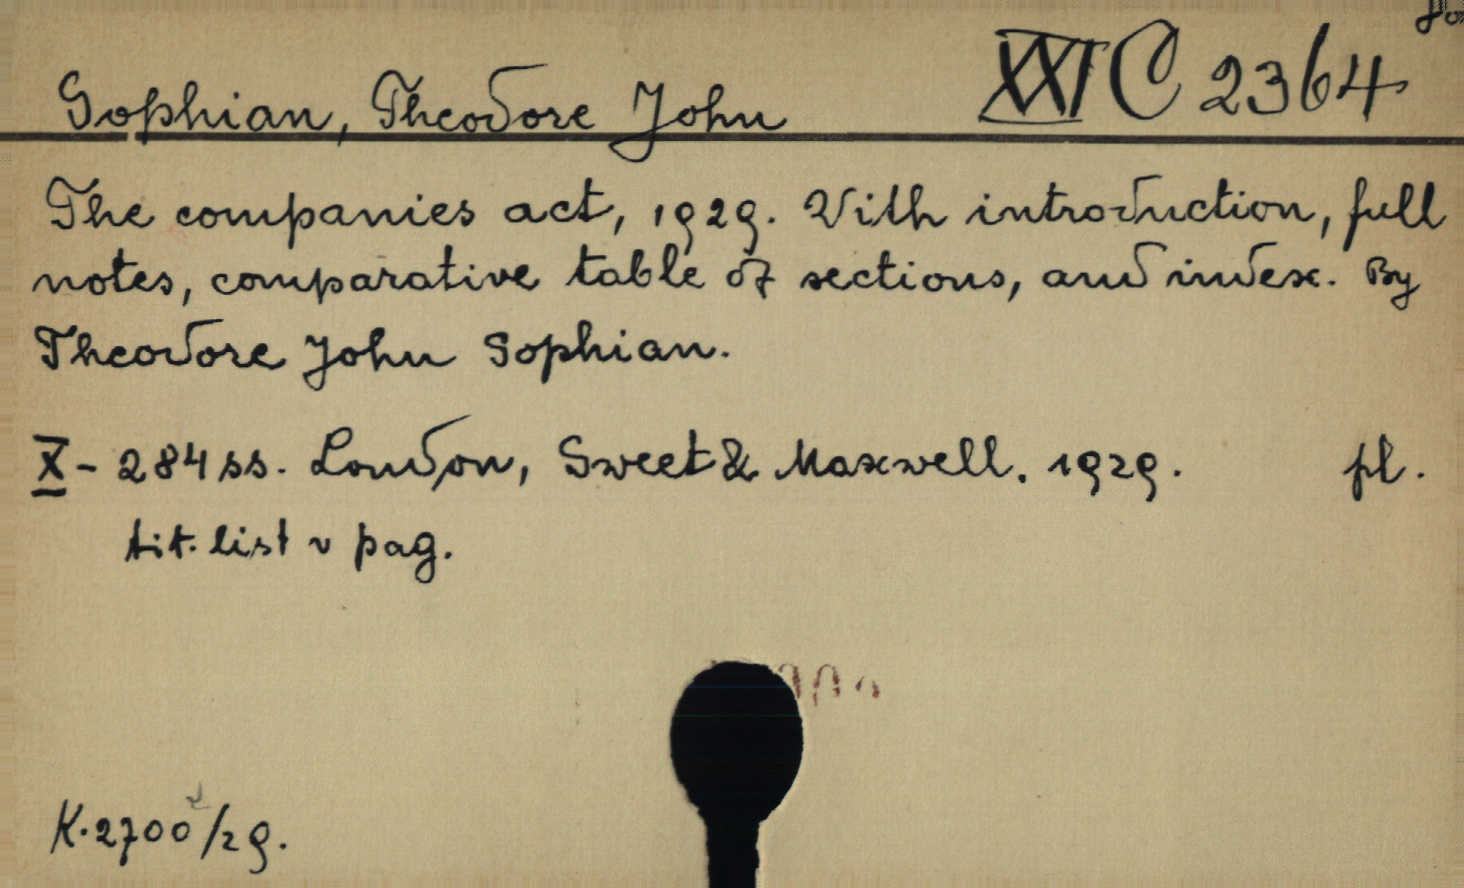 Sophian, Theodore John XXI C 2364
The companies act, 1929. With introduction, full
notes, comparative table of sections, and index. By
Theodore John Sophian.
X - 284 ss. London, Sweet & Maxwell. 1929. pl.
tit. list v pag.
K. 2700/29.